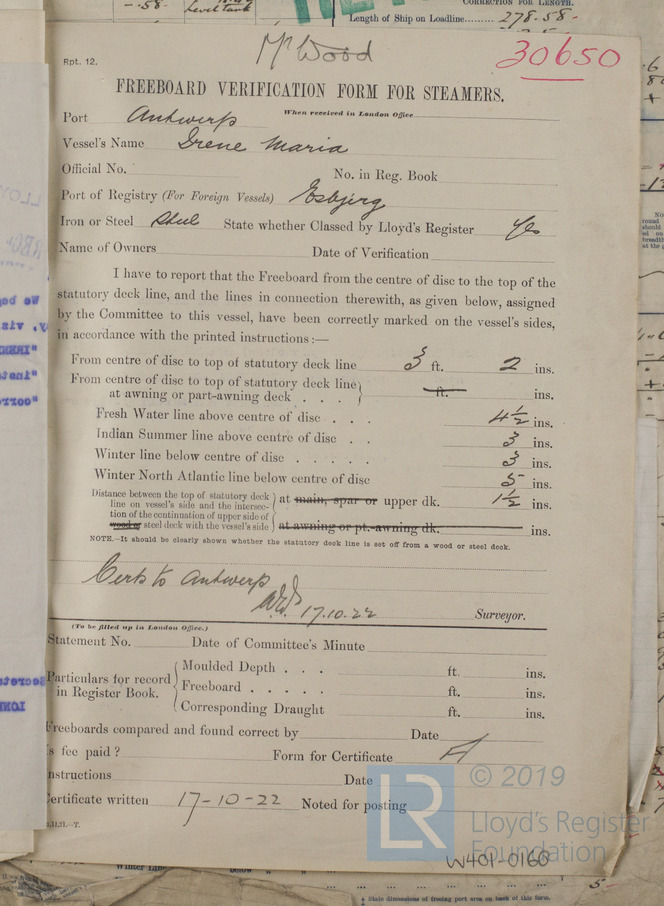 -.58-
Level tank
CORRECTION FOR LENGTH.
Length of Ship on Loadline......... 278.58.
Mr Wood
30650
Rpt. 12.
FREEBOARD VERIFICATION FORM FOR STEAMERS.
When received in London Office
Port Antwerp
Vessel's Name Irene Maria
Official No. No. in Reg. Book
Port of Registry (For Foreign Vessels) Esbjerg
Iron or Steel Steel State whether Classed by Lloyd's Register Yes
Name of Owners Date of Verification
I have to report that the Freeboard from the centre of disc to the top of the
statutory deck line, and the lines in connection therewith, as given below, assigned
by the Committee to this vessel, have been correctly marked on the vessel's sides,
in accordance with the printed instructions :—
From centre of disc to top of statutory deck line 3 ft. 2 ins.
From centre of disc to top of statutory deck line
at awning or part-awning deck . . . ft. ins.
Fresh Water line above centre of disc . . . 4½ ins.
Indian Summer line above centre of disc . . 3 ins.
Winter line below centre of disc . . . . . 3 ins.
Winter North Atlantic line below centre of disc 5 ins.
Distance between the top of statutory deck
line on vessel's side and the intersec-
tion of the continuation of upper side of
wood or steel deck with the vessel's side
at main, spar or upper dk. 1½ ins.
at awning or pt.-awning dk. ins.
NOTE.—It should be clearly shown whether the statutory deck line is set off from a wood or steel deck.
Certs to Antwerp
17.10.22 Surveyor.
(To be filled up in London Office.)
Statement No. Date of Committee's Minute
Particulars for record
in Register Book.
Moulded Depth . . . ft. ins.
Freeboard . . . . . ft. ins.
Corresponding Draught ft. ins.
Freeboards compared and found correct by Date
s fee paid ? Form for Certificate
nstructions Date
Certificate written 17-10-22 Noted for posting
© 2019
LR
Lloyd's Register
Foundation
W401-0160
‡ State dimensions of freeing port area on back of this form.